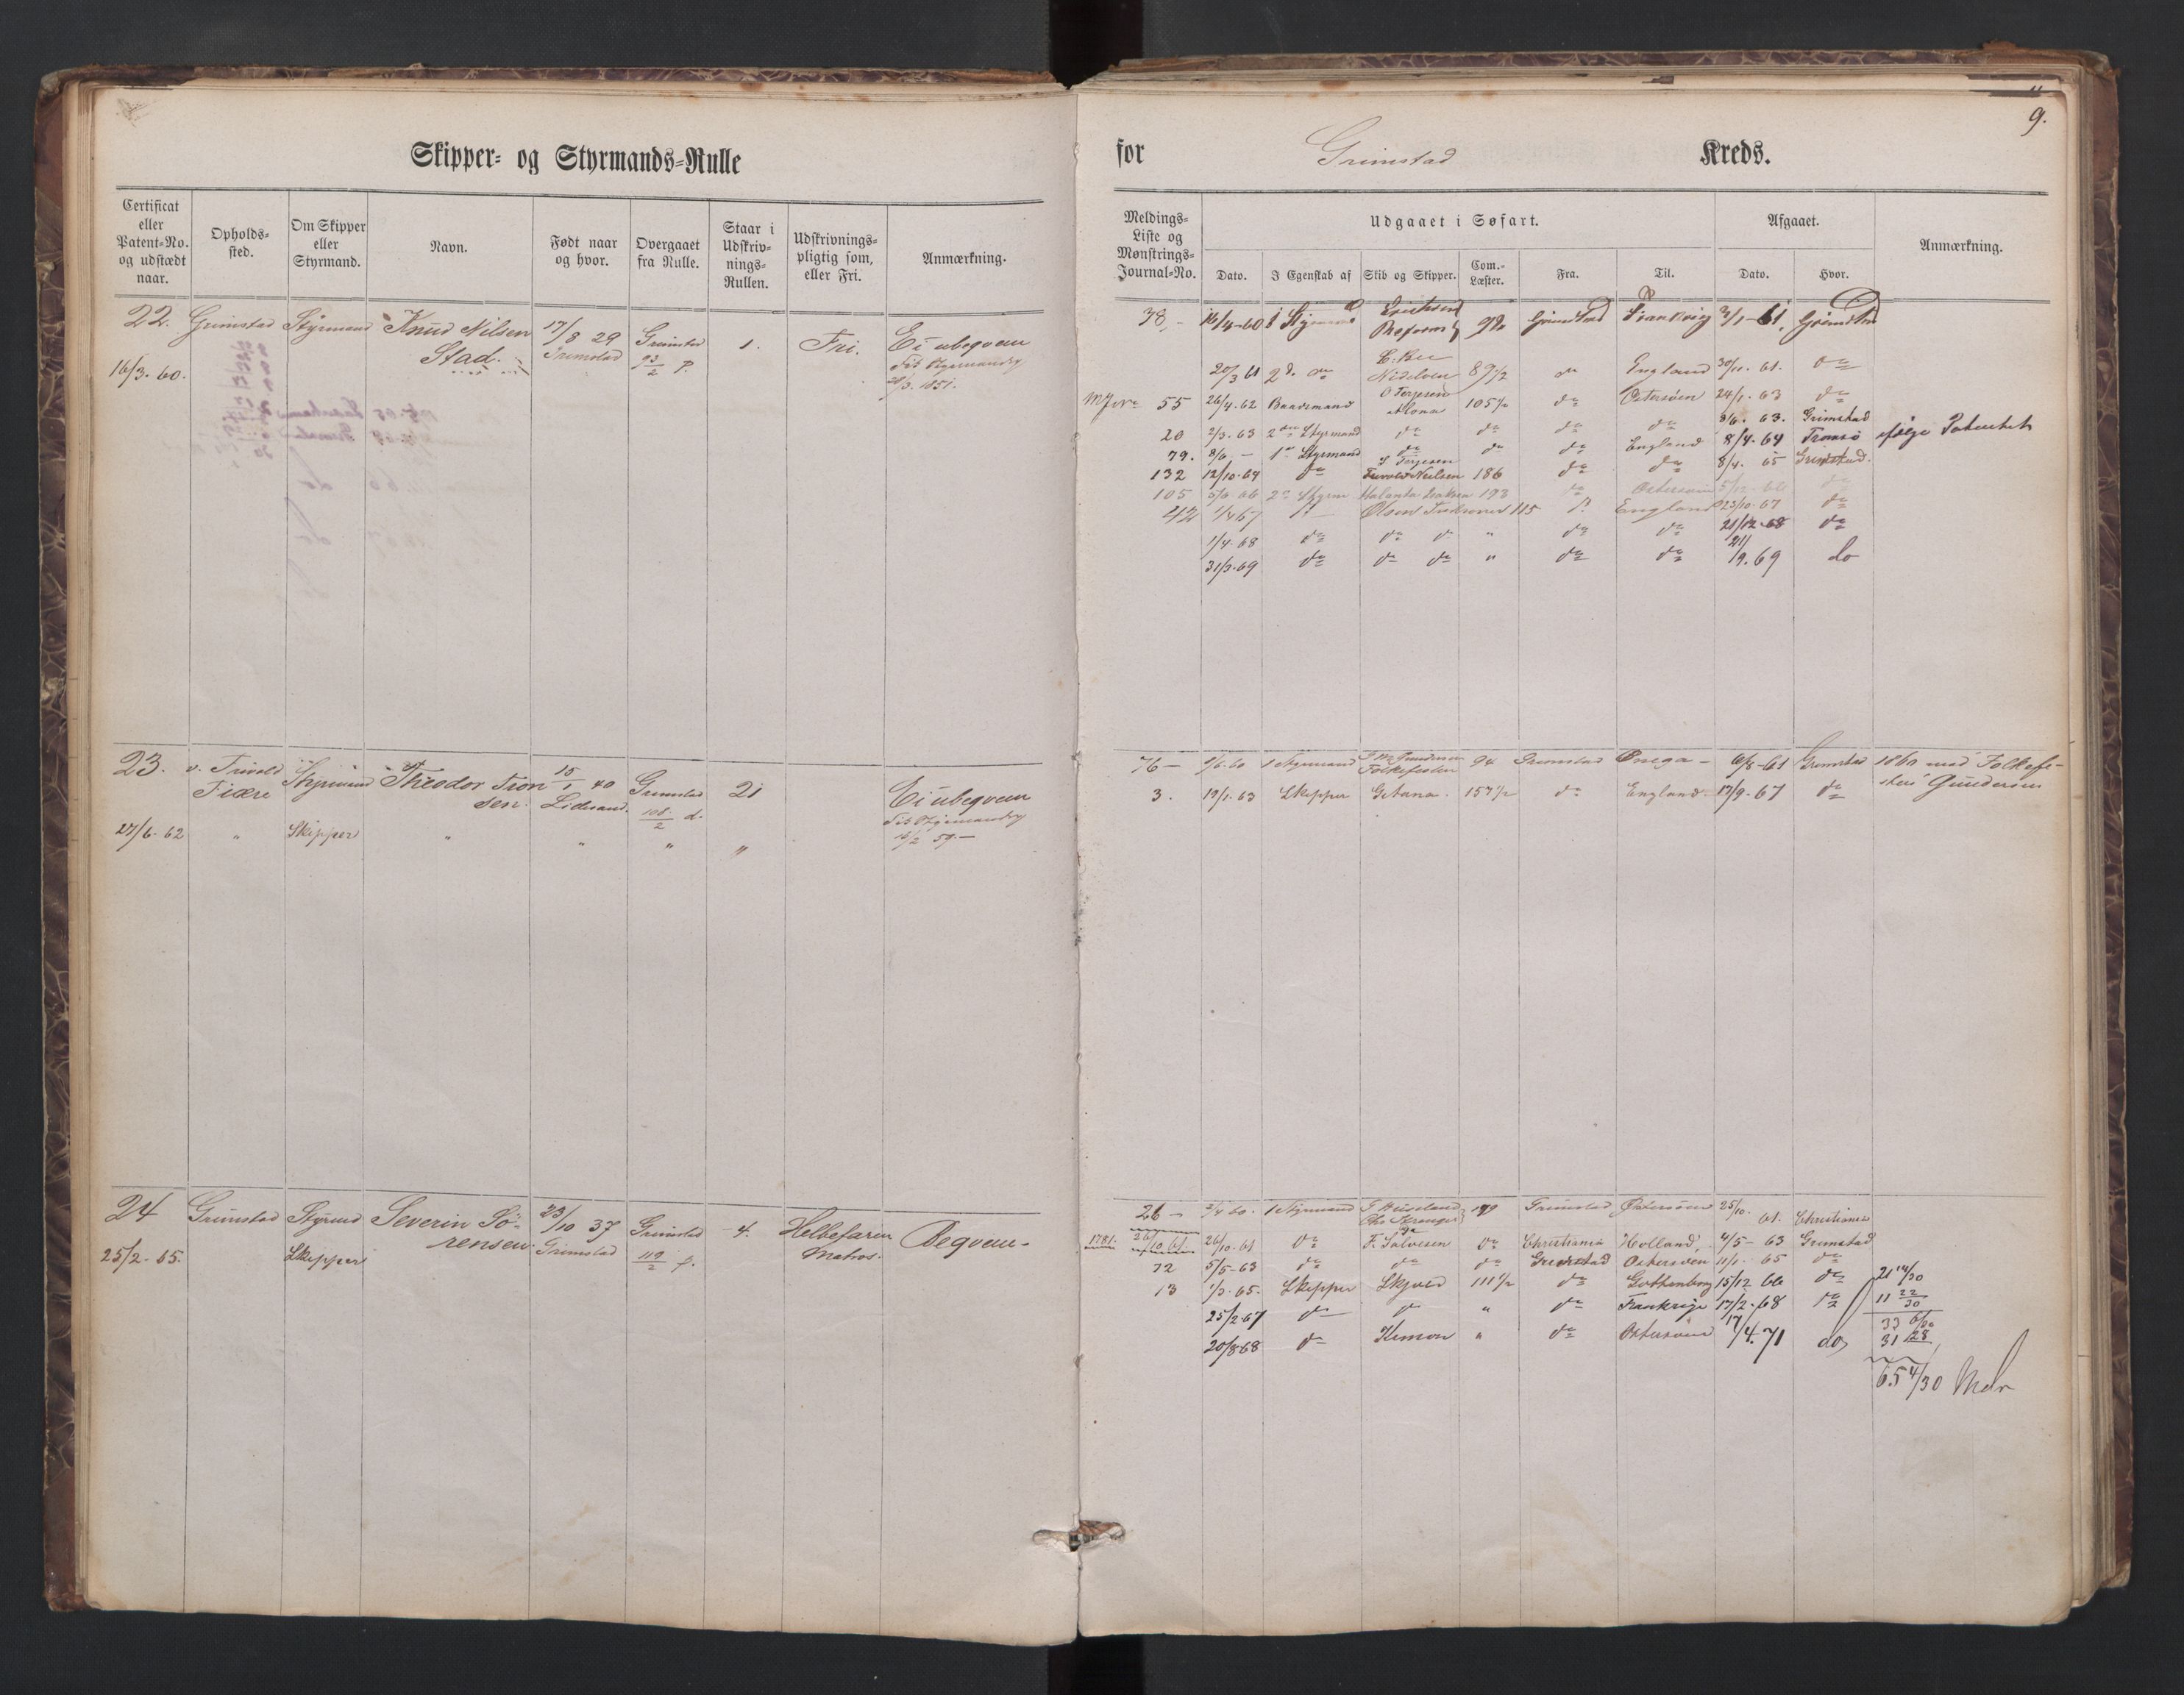 9.
Skipper- og Styrmands-Rulle
for Grimstad Kreds.
Certificat eller Patent-No. og udstædt naar.
Opholds-sted.
Om Skipper eller Styrmand.
Navn.
Født naar og hvor.
Overgaaet fra Rulle.
Staar i Udskriv-nings-Rullen.
Udskrivnings-pligtig som, eller Fri.
Anmærkning.
Meldings-Liste og Mønstrings-Journal-No.
Udgaaet i Søfart.
Afgaaet.
Anmærkning.
Dato. I Egenskab af Skib og Skipper. Com.-Læster. Fra. Til. Dato. Hvor.
22. Grimstad Styrmand Knud Nilsen 17/8 29 1. Fri. Ei ubeqvem
Stad. Grimstad 93/2 p.
16/3. 60. 1851.
38. 16/4-60 Grimstad 3/1-61. Grimstad
20/3 61 2d. do Nidelven 89 1/2 do England 30/11. 61. do
55 26/4. 62 Baadsmand O Terjesen 105 1/2 do Østersøen 24/1. 63 do
20 2/3. 63 2den Styrmand do do do do 3/6. 63. Grimstad
79. 8/6 - 1ste Styrmand do do do England 8/4. 64 Tromsø ifølge Patentet
132 12/10. 64 do Nielsen 186 do do 8/4. 65 Grimstad.
105 2den Styrm 193 do Østersøen do
42 1/4 67 Olsen 115 England 23/10. 67 do
1/4. 68 do do do " do do 21/12. 68 do
31/3. 69 do do do " do do 21/9. 69 do
23. v. Trivold Styrmand Theodor Tron 15/1 40 Grimstad 21 Ei ubeqvem
Fiære sen. Lillesand. 108/2 d.
27/6. 62 " Skipper " " " " 59.-
76- 1 Styrmand Folkefesten 94 Grimstad Onega- 6/8-61 Grimstad 1860 med Folkefe-
3. 19/1. 63 Skipper Getana. 157 1/2 do England 17/9. 67 do sten Gundersen
24 Grimstad Styrmd Severin Sö- 23/10 37 Grimstad 4. Helbefaren Beqvem-
25/2. 65. Skipper rensen. Grimstad 119/2 p. Matros.
26- 2/4 60. 1 Styrmand Grimstad Østersøen 25/10. 61. Christiania
1781. 26/10. 61. 26/10. 61 do F. Salvesen do Christiania Holland, 4/5- 63 Grimstad
72 5/5-63 do do do Grimstad Østersøen 11/1. 65 do
13 1/3. 65. Skipper Skjold 111 1/2 do Gothenborg 15/12 66 do 21 14/30
25/2. 67 do do " do Frankrige 17/2. 68 do 11 22/30
20/8. 68 do " do Østersøen 17/4. 71 do 33 6/30
31 28
65 4/30 Mdr